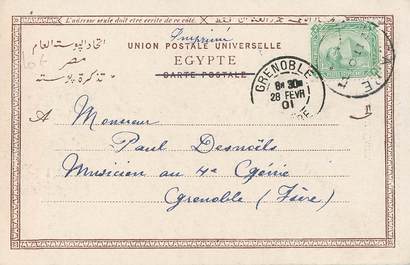 L'adresse seule doit être écrite de ce coté.
Imprimé
UNION POSTALE UNIVERSELLE
EGYPTE
CARTE POSTALE
اتحاد البوسته العام
مصر
تذكرة بوسته
GRENOBLE
8H 30
28 FEVR
01
A Monsieur
Paul Desnoëls
Musicien au 4e Génie
Grenoble (Isère)